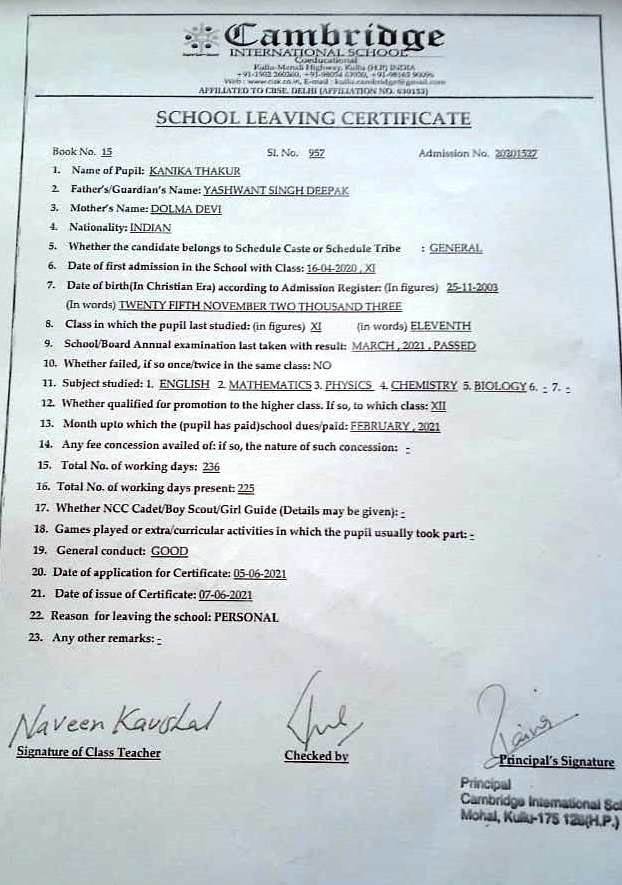 Cambridge
INTERNATIONAL SCHOOL
Coeducational
Kullu-Manali Highway, Kullu (H.P.) INDIA
AFFILIATED TO CBSE, DELHI (AFFILIATION NO. 630153)
SCHOOL LEAVING CERTIFICATE
Book No. 15 Sl. No. 957 Admission No. 20201527
1. Name of Pupil: KANIKA THAKUR
2. Father's/Guardian's Name: YASHWANT SINGH DEEPAK
3. Mother's Name: DOLMA DEVI
4. Nationality: INDIAN
5. Whether the candidate belongs to Schedule Caste or Schedule Tribe : GENERAL
6. Date of first admission in the School with Class: 16-04-2020 , XI
7. Date of birth(In Christian Era) according to Admission Register: (In figures) 25-11-2003
(In words) TWENTY FIFTH NOVEMBER TWO THOUSAND THREE
8. Class in which the pupil last studied: (in figures) XI (in words) ELEVENTH
9. School/Board Annual examination last taken with result: MARCH , 2021 , PASSED
10. Whether failed, if so once/twice in the same class: NO
11. Subject studied: 1. ENGLISH 2. MATHEMATICS 3. PHYSICS 4. CHEMISTRY 5. BIOLOGY 6. - 7. -
12. Whether qualified for promotion to the higher class. If so, to which class: XII
13. Month upto which the (pupil has paid)school dues/paid: FEBRUARY , 2021
14. Any fee concession availed of: if so, the nature of such concession: -
15. Total No. of working days: 236
16. Total No. of working days present: 225
17. Whether NCC Cadet/Boy Scout/Girl Guide (Details may be given): -
18. Games played or extra/curricular activities in which the pupil usually took part: -
19. General conduct: GOOD
20. Date of application for Certificate: 05-06-2021
21. Date of issue of Certificate: 07-06-2021
22. Reason for leaving the school: PERSONAL
23. Any other remarks: -
Naveen Kaushal
Signature of Class Teacher Checked by Principal's Signature
Principal
Cambridge International Sch
Mohal, Kullu-175 126(H.P.)